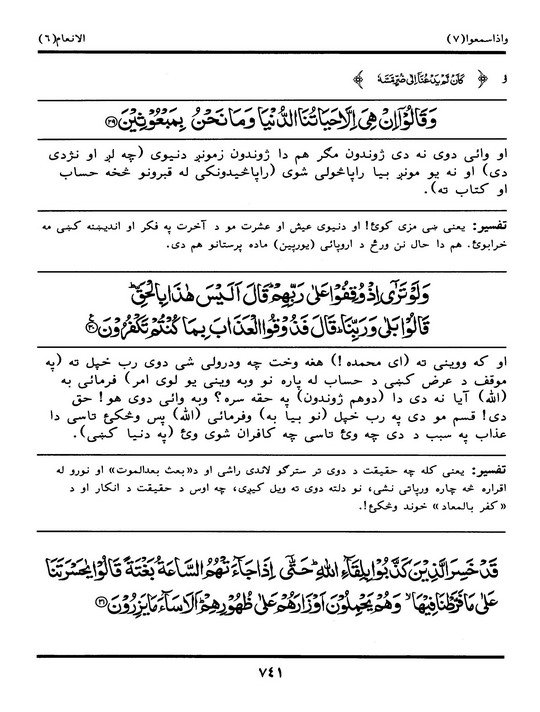 واذاسمعوا(٧) الانعام(٦)
و ﴿ كَاَنْ لَّمْ يَدْعُنَاۤ اِلٰى ضُرٍّ مَّسَّهٗ ﴾
وَقَالُوْۤا اِنْ هِيَ اِلَّا حَيَاتُنَا الدُّنْيَا وَمَا نَحْنُ بِمَبْعُوْثِيْنَ ﴿٢٩﴾
او وائی دوی نه دی ژوندون مګر هم دا ژوندون زمونږ دنیوی (چه لږ او نژدی
دی) او نه یو مونږ بیا راپاڅولی شوی (راپاڅیدونکی له قبرونو څخه حساب
او کتاب ته).
تفسیر: یعنی ښی مزی کوئ! او دنیوی عیش او عشرت مو د آخرت په فکر او اندیښنه کښی مه
خرابوئ. هم دا حال نن ورځ د اروپائی (یورپین) ماده پرستانو هم دی.
وَلَوْ تَرٰۤى اِذْ وُقِفُوْا عَلٰى رَبِّهِمْ ؕ قَالَ اَلَيْسَ هٰذَا بِالْحَقِّ ؕ
قَالُوْا بَلٰى وَرَبِّنَا ؕ قَالَ فَذُوْقُوا الْعَذَابَ بِمَا كُنْتُمْ تَكْفُرُوْنَ ﴿٣٠﴾
او که ووینی ته (ای محمده!) هغه وخت چه ودرولی شی دوی رب خپل ته (په
موقف د عرض کښی د حساب له پاره نو وبه وینی یو لوی امر) فرمائی به
(الله) آیا نه دی دا (دوهم ژوندون) په حقه سره؟ وبه وائی دوی هو! حق
دی! قسم مو دی په رب خپل (نو بیا به) وفرمائی (الله) پس وڅکئ تاسی دا
عذاب په سبب د دی چه وئ تاسی چه کافران شوی وئ (په دنیا کښی).
تفسیر: یعنی کله چه حقیقت د دوی تر سترګو لاندی راشی او د«بعث بعدالموت» او نورو له
اقراره څه چاره ورپاتی نشی، نو دلته دوی ته ویل کیږی، چه اوس د حقیقت د انکار او د
«کفر بالمعاد» خوند وڅکئ!.
قَدْ خَسِرَ الَّذِيْنَ كَذَّبُوْا بِلِقَآءِ اللّٰهِ ؕ حَتّٰۤى اِذَا جَآءَتْهُمُ السَّاعَةُ بَغْتَةً قَالُوْا يٰحَسْرَتَنَا
عَلٰى مَا فَرَّطْنَا فِيْهَا ۙ وَهُمْ يَحْمِلُوْنَ اَوْزَارَهُمْ عَلٰى ظُهُوْرِهِمْ ؕ اَلَا سَآءَ مَا يَزِرُوْنَ ﴿٣١﴾
٧٤١